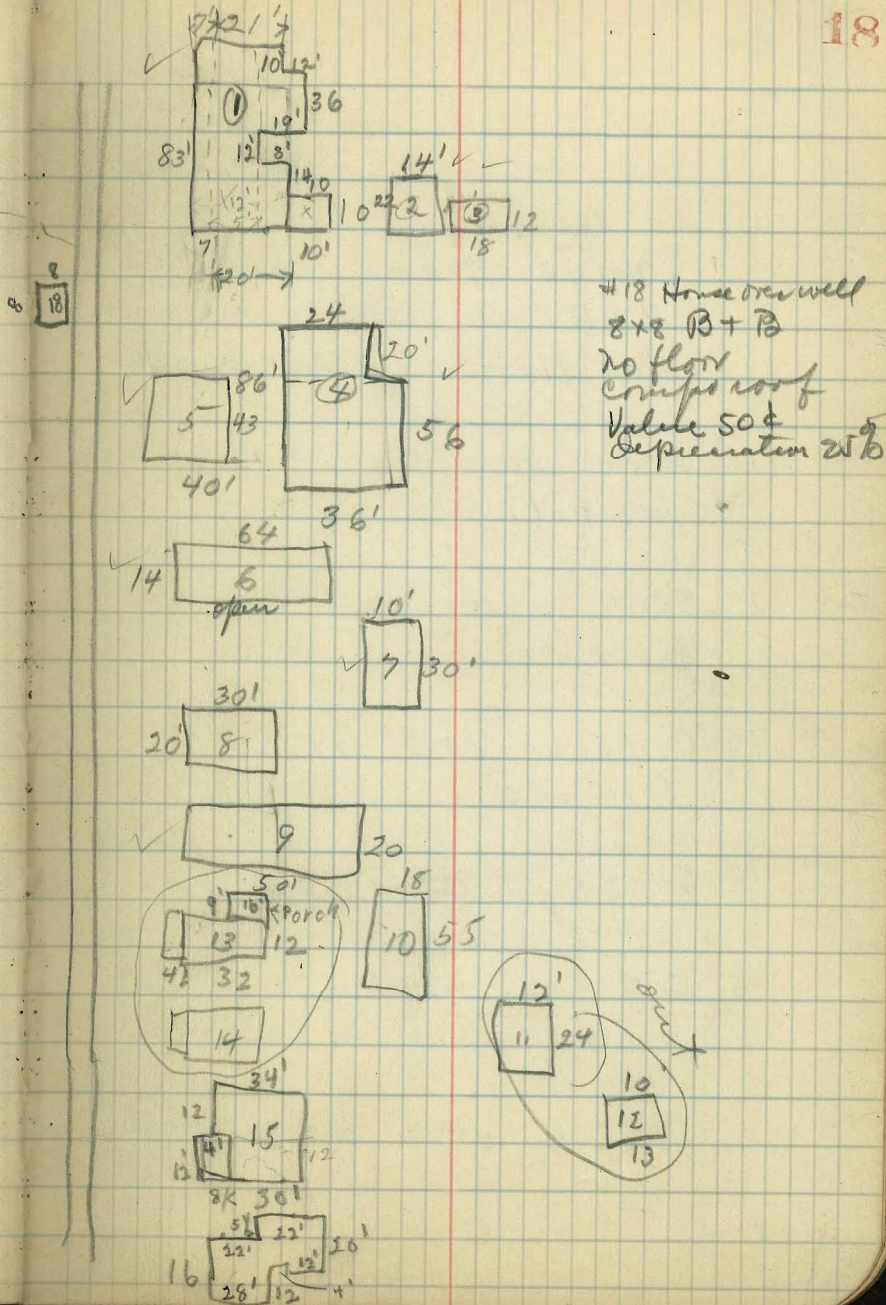 18
7' 21'
10' 12'
1
36
19'
83' 12' 8'
14 10
12'
7
10
10'
20'
14'
22 2
3 12
18
8
8 18
#18 House over well
8x8 B + B
No floor
compo roof
Value 50¢
depreciation 25%
24
20'
86'
4
5 43
56
40'
36'
64
14 6
open
10'
7 30'
30'
20' 8
9 20
50'
18
9' 16' Porch
13 12
10 55
4' 32
14
12'
11 24
out
10
12
13
34'
12
15
4'
12' 12
8x 30'
5' 22'
22' 20'
16 12'
28' 12 4'